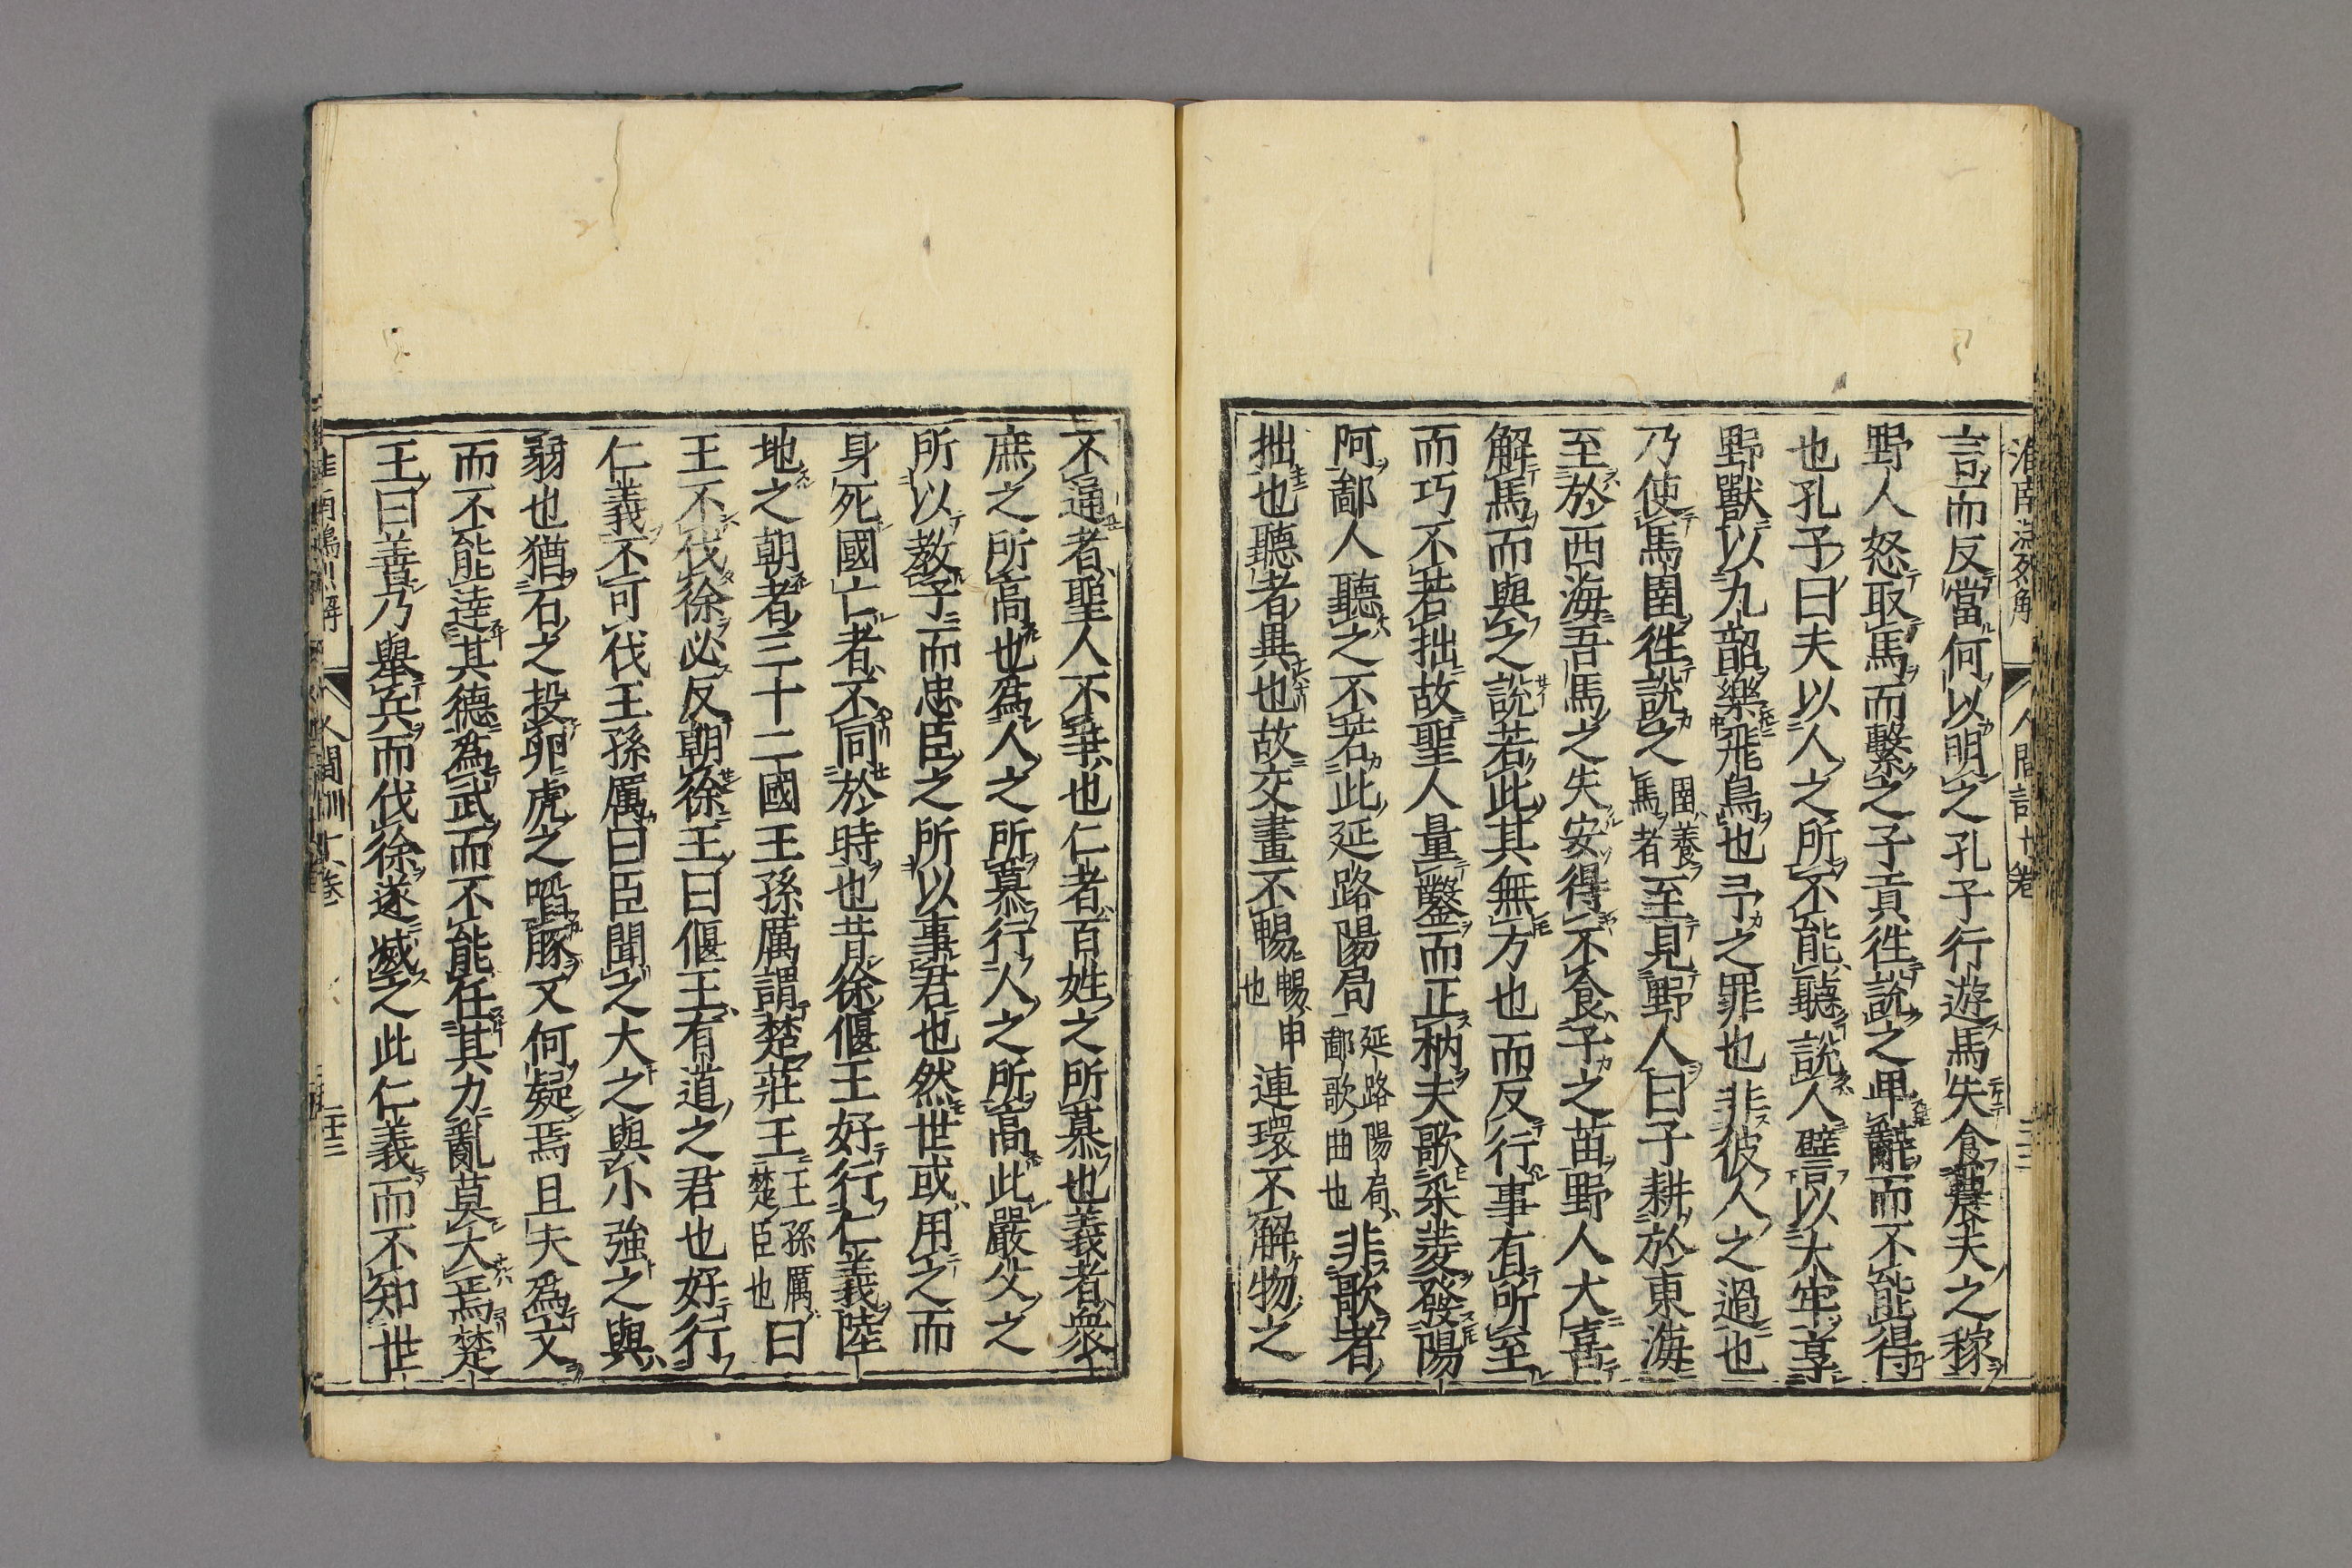 淮南鴻烈解 人間訓十八卷
言而反當何以明之孔子行遊馬失食農夫之稼
野人怒取馬而繫之子貢徃說之畢辭而不能得
也孔子曰夫以人之所不能聽說人譬以太牢享
野獸以九韶樂飛鳥也予之罪也非彼人之過也
乃使馬圉徃說之圉養馬者至見野人曰子耕於東海
至於西海吾馬之失安得不食子之苗野人大喜
解馬而與之說若此其無方也而反行事有所至
而巧不若拙故聖人量鑿而正枘夫歌采菱發陽
阿鄙人聽之不若此延路陽局延路陽局鄙歌曲也非歌者
拙也聽者異也故交畫不暢暢申也連環不解物之
不通者聖人不爭也仁者百姓之所慕也義者衆
庶之所高也爲人之所慕行人之所高此嚴父之
所以教子而忠臣之所以事君也然世或用之而
身死國亡者不同於時也昔徐偃王好行仁義陸
地之朝者三十二國王孫厲謂楚莊王王孫厲楚臣也曰
王不伐徐必反朝徐王曰偃王有道之君也好行
仁義不可伐王孫厲曰臣聞之大之與小強之與
弱也猶石之投卵虎之啗豚又何疑焉且夫爲文
而不能達其德爲武而不能任其力亂莫大焉楚
王曰善乃舉兵而伐徐遂滅之此仁義而不知世
人間訓十八卷 二十三